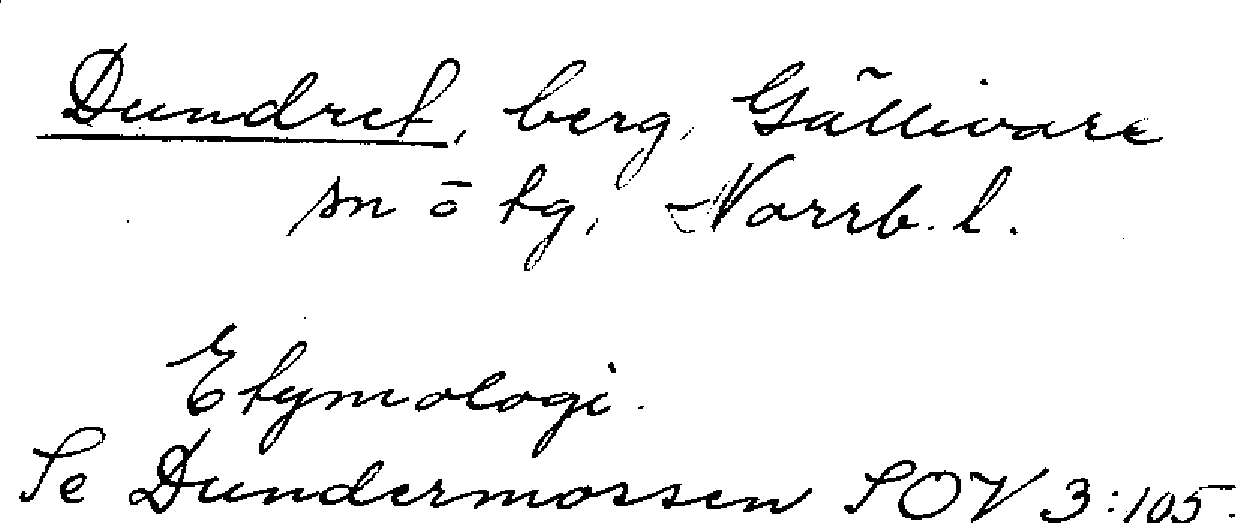 Dundret, berg, Gällivare
sn o tg, Norrb. l.
Etymologi.
Se Dundermossen SOV 3:105.